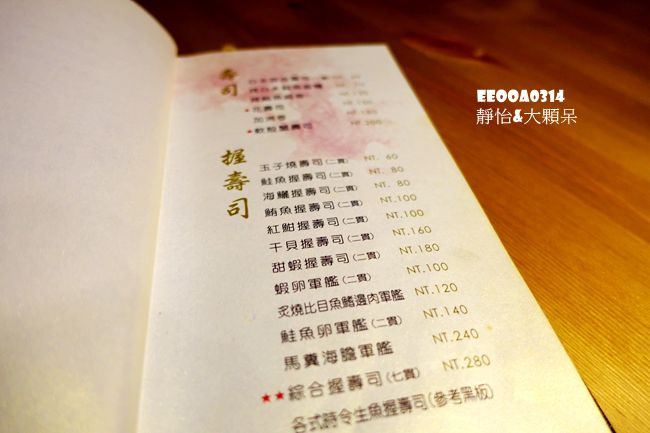 壽司
花壽司
加州卷
軟殼蟹壽司
握壽司
玉子燒壽司(二貫) NT. 60
鮭魚握壽司(二貫) NT. 80
海鱺握壽司(二貫) NT. 80
鮪魚握壽司(二貫) NT.100
紅魽握壽司(二貫) NT.100
干貝握壽司(二貫) NT.160
甜蝦握壽司(二貫) NT.180
蝦卵軍艦(二貫) NT.100
炙燒比目魚鰭邊肉軍艦 NT.120
鮭魚卵軍艦(二貫) NT.140
馬糞海膽軍艦 NT.240
★★綜合握壽司(七貫) NT.280
各式時令生魚握壽司(參考黑板)
EEOOA0314
靜怡&大顆呆